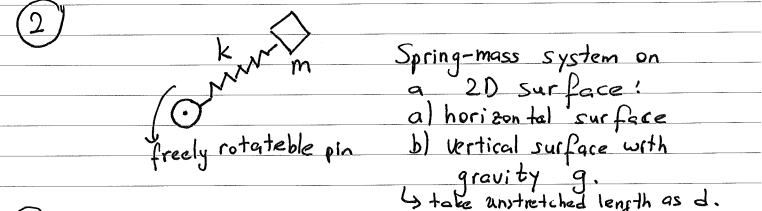 2
k
m
freely rotateble pin
Spring-mass system on
a 2D surface:
a) horizontal surface
b) vertical surface with
gravity g.
↳ take unstretched length as d.